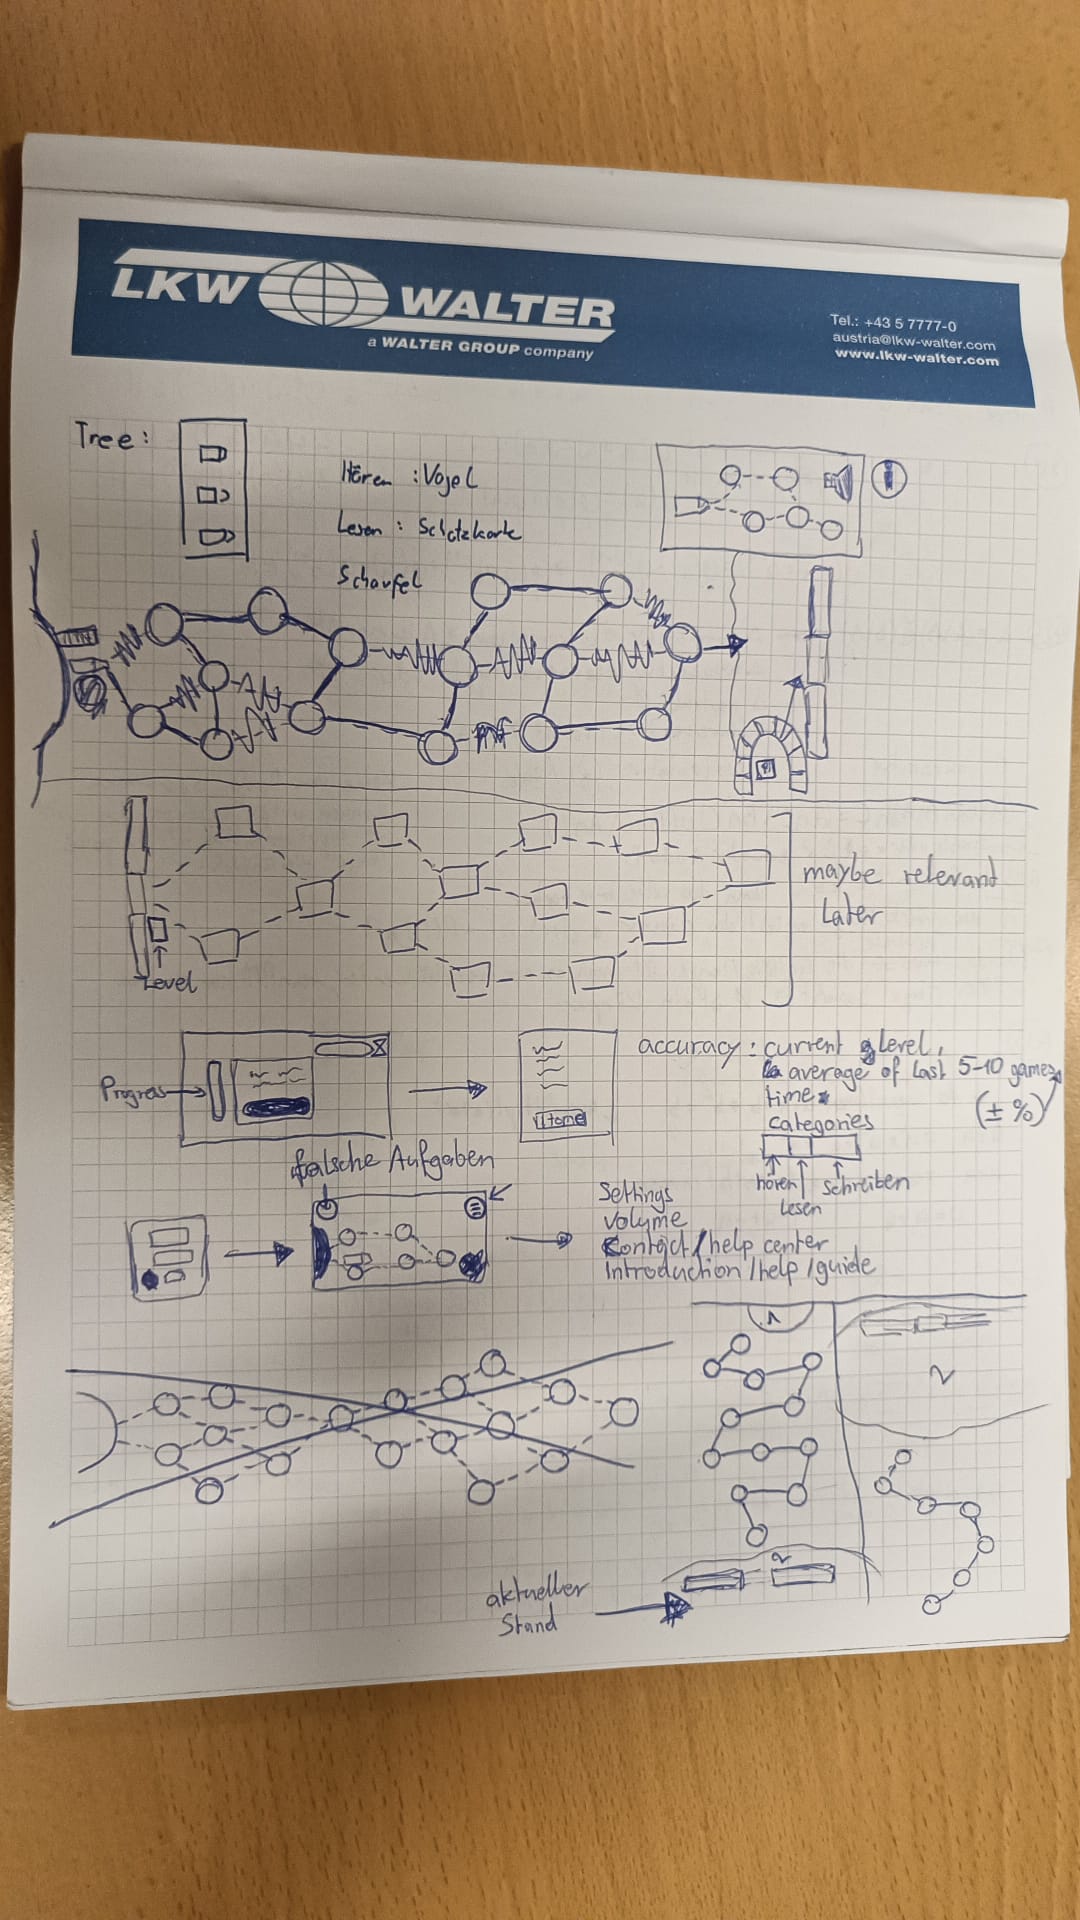 LKW WALTER
a WALTER GROUP company
Tel.: +43 5 7777-0
austria@lkw-walter.com
www.lkw-walter.com
Tree:
Hören : Vogel
Lesen : Schatzkarte
Schaufel
Level
maybe relevant
Later
Progress
Home
accuracy: current level,
average of last 5-10 games
(± %)
time
categories
hören
lesen
schreiben
falsche Aufgaben
Settings
volume
Contact/help center
Introduction/help/guide
1
2
2
aktueller
Stand